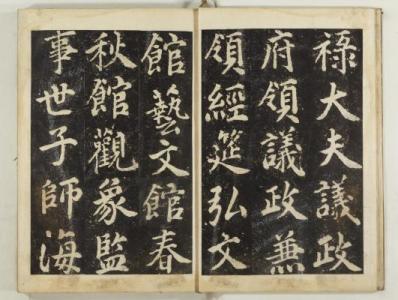 祿大夫議政
府領議政兼
領經筵弘文
館藝文館春
秋館觀象監
事世子師海